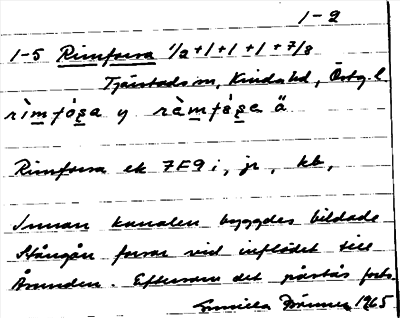 1-2
1-5 Rimforsa 1/2+1+1+1+7/8
Tjärstads sn, Kinda hd, Östg. l.
rìmfòsa y ràmfòsa ä
Rimforsa ek 7F9i, jr, kb,
Innan kanalen byggdes bildade
Stångån forsar vid inflödet till
Åsunden. Eftersom det påstås forts.
Gunilla 1965